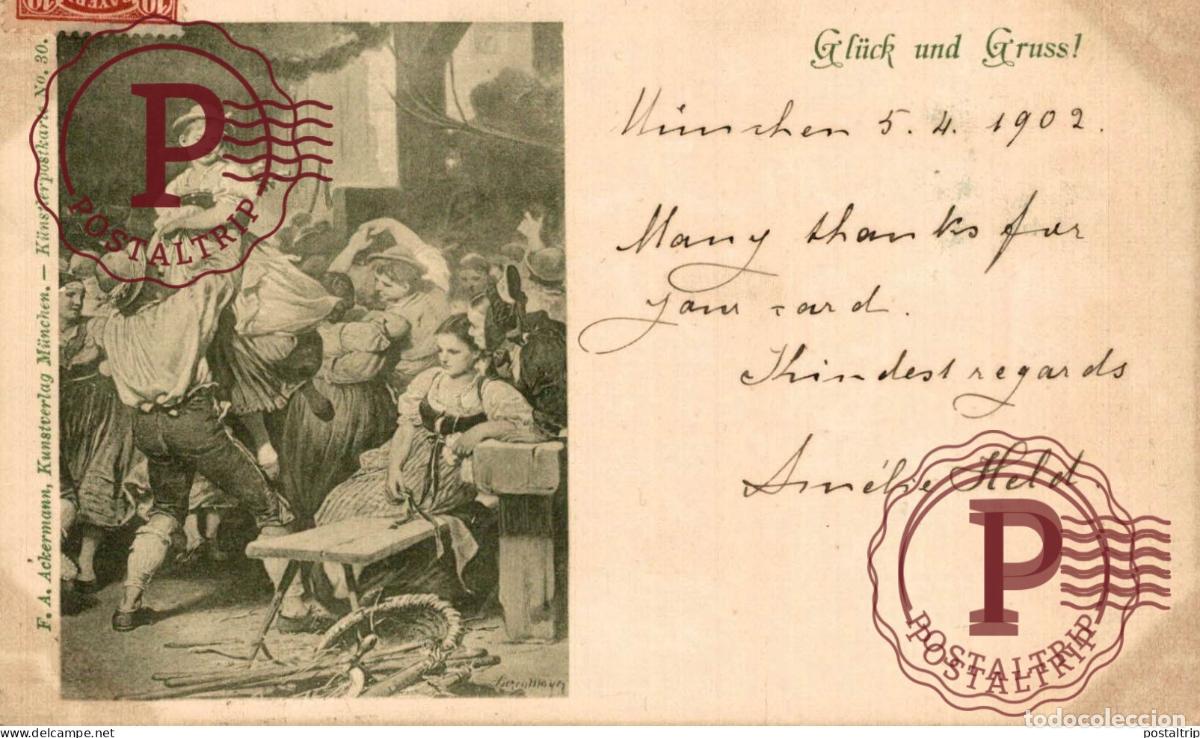 10 BAYERN 10
F. A. Ackermann, Kunstverlag München. — Künstlerpostkarte No. 30.
Glück und Gruss!
München 5. 4. 1902.
Many thanks for
your card.
Kindest regards
Amélie Held.
P
POSTALTRIP
P
POSTALTRIP
POSTALTRIP
todocoleccion
www.todocoleccion.net
postaltrip